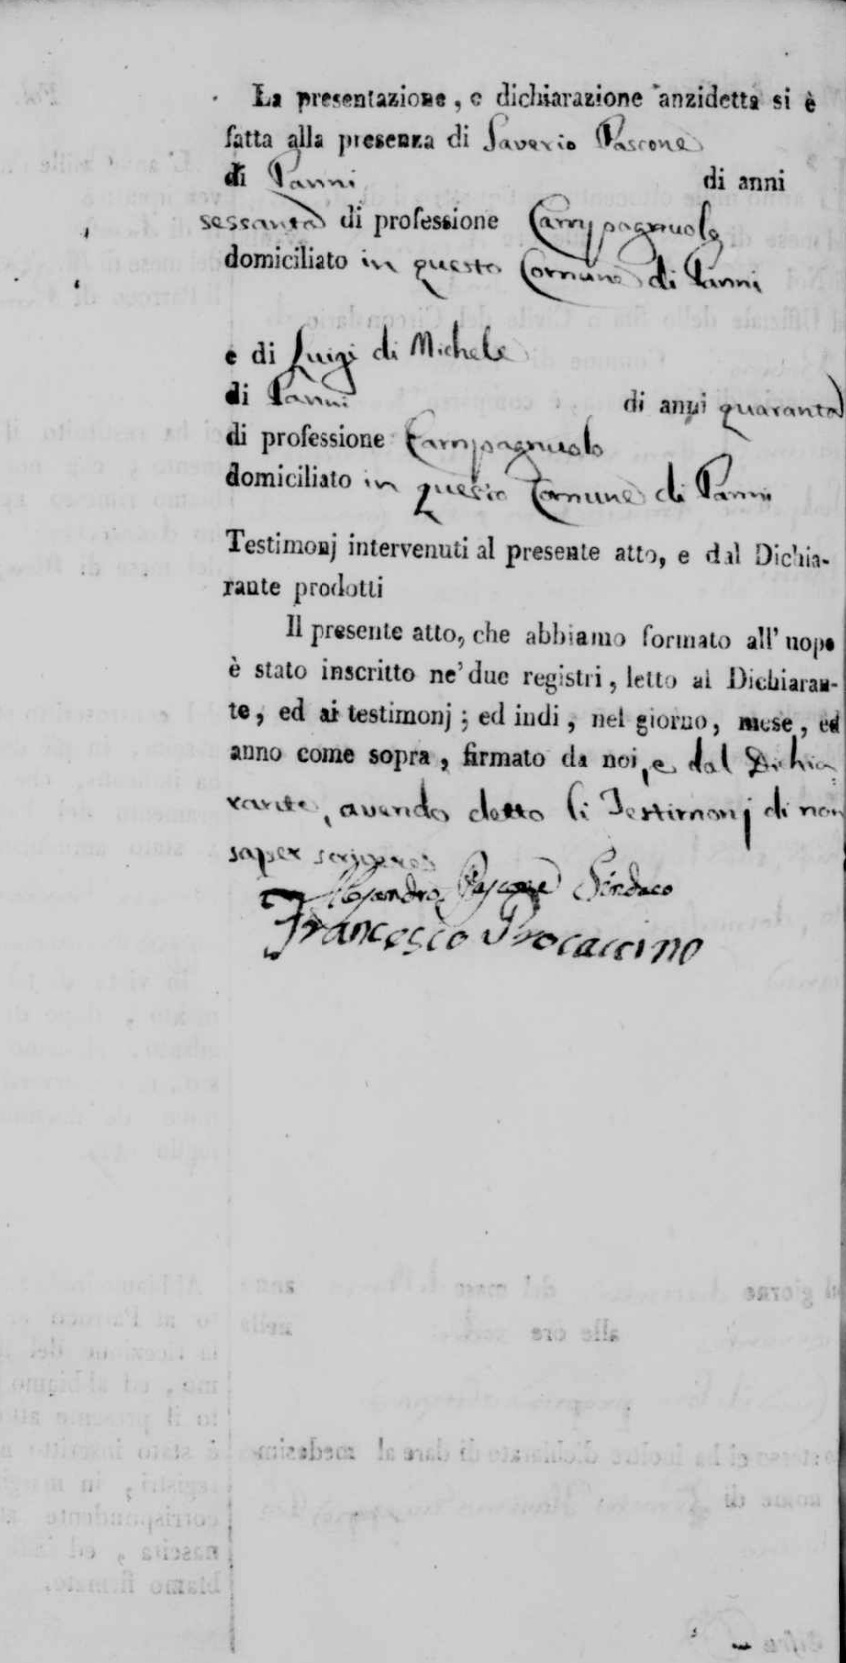 La presentazione, e dichiarazione anzidetta si è
fatta alla presenza di Saverio Pascone
di Panni di anni
sessanta di professione Campagnuolo
domiciliato in questo Comune di Panni
e di Luigi di Michele
di Panni di anni quaranta
di professione Campagnuolo
domiciliato in questo Comune di Panni
Testimonj intervenuti al presente atto, e dal Dichia-
rante prodotti
Il presente atto, che abbiamo formato all' uopo
è stato inscritto ne' due registri, letto al Dichiaran-
te, ed ai testimonj; ed indi, nel giorno, mese, ed
anno come sopra, firmato da noi, e dal Dichia=
rante, avendo detto li Testimonj di non
saper scrivere
Pascone Sindaco
Francesco Procaccino